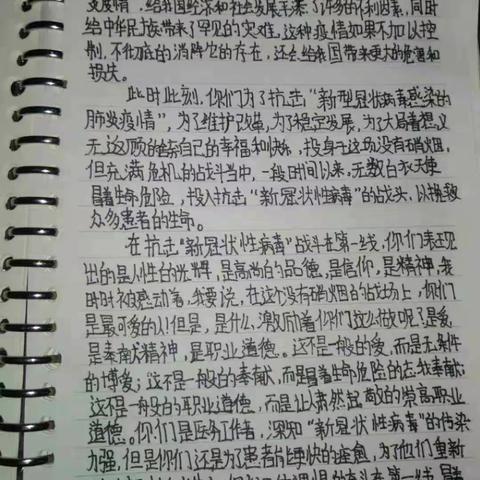 疫情，给我国经济和社会发展带来了许多的不利因素，同时
给中华民族带来了罕见的灾难。这种疫情如果不加以控
制，不彻底的消除它的存在，还会给我国带来更大的危害和
损失。
此时此刻，你们为了抗击“新型冠状病毒感染的
肺炎疫情”，为了维护改革，为了稳定发展，为了大局着想义
无返顾的舍弃自己的幸福和快乐，投身于这场没有硝烟，
但充满危机的战斗当中，一段时间以来，无数白衣天使
冒着生命危险，投入抗击“新冠状性病毒”的战头，以挽救
众多患者的生命。
在抗击“新冠状性病毒”战斗在第一线，你们表现
出的是人性的光辉，是高尚的品德，是信仰，是精神，我
时时被感动着，我要说，在这个没有硝烟的战场上，你们
是最可爱的人！但是，是什么，激励着你们这么做呢？是爱，
是奉献精神，是职业道德。这不是一般的爱，而是无条件
的博爱；这不是一般的奉献，而是冒着生命危险的忘我奉献；
这不是一般的职业道德，而是让人肃然起敬的崇高职业
道德。你们是医务工作者，深知“新冠状性病毒”的传染
力强，但是你们还是为了患者能更快的痊愈，为了他们重新